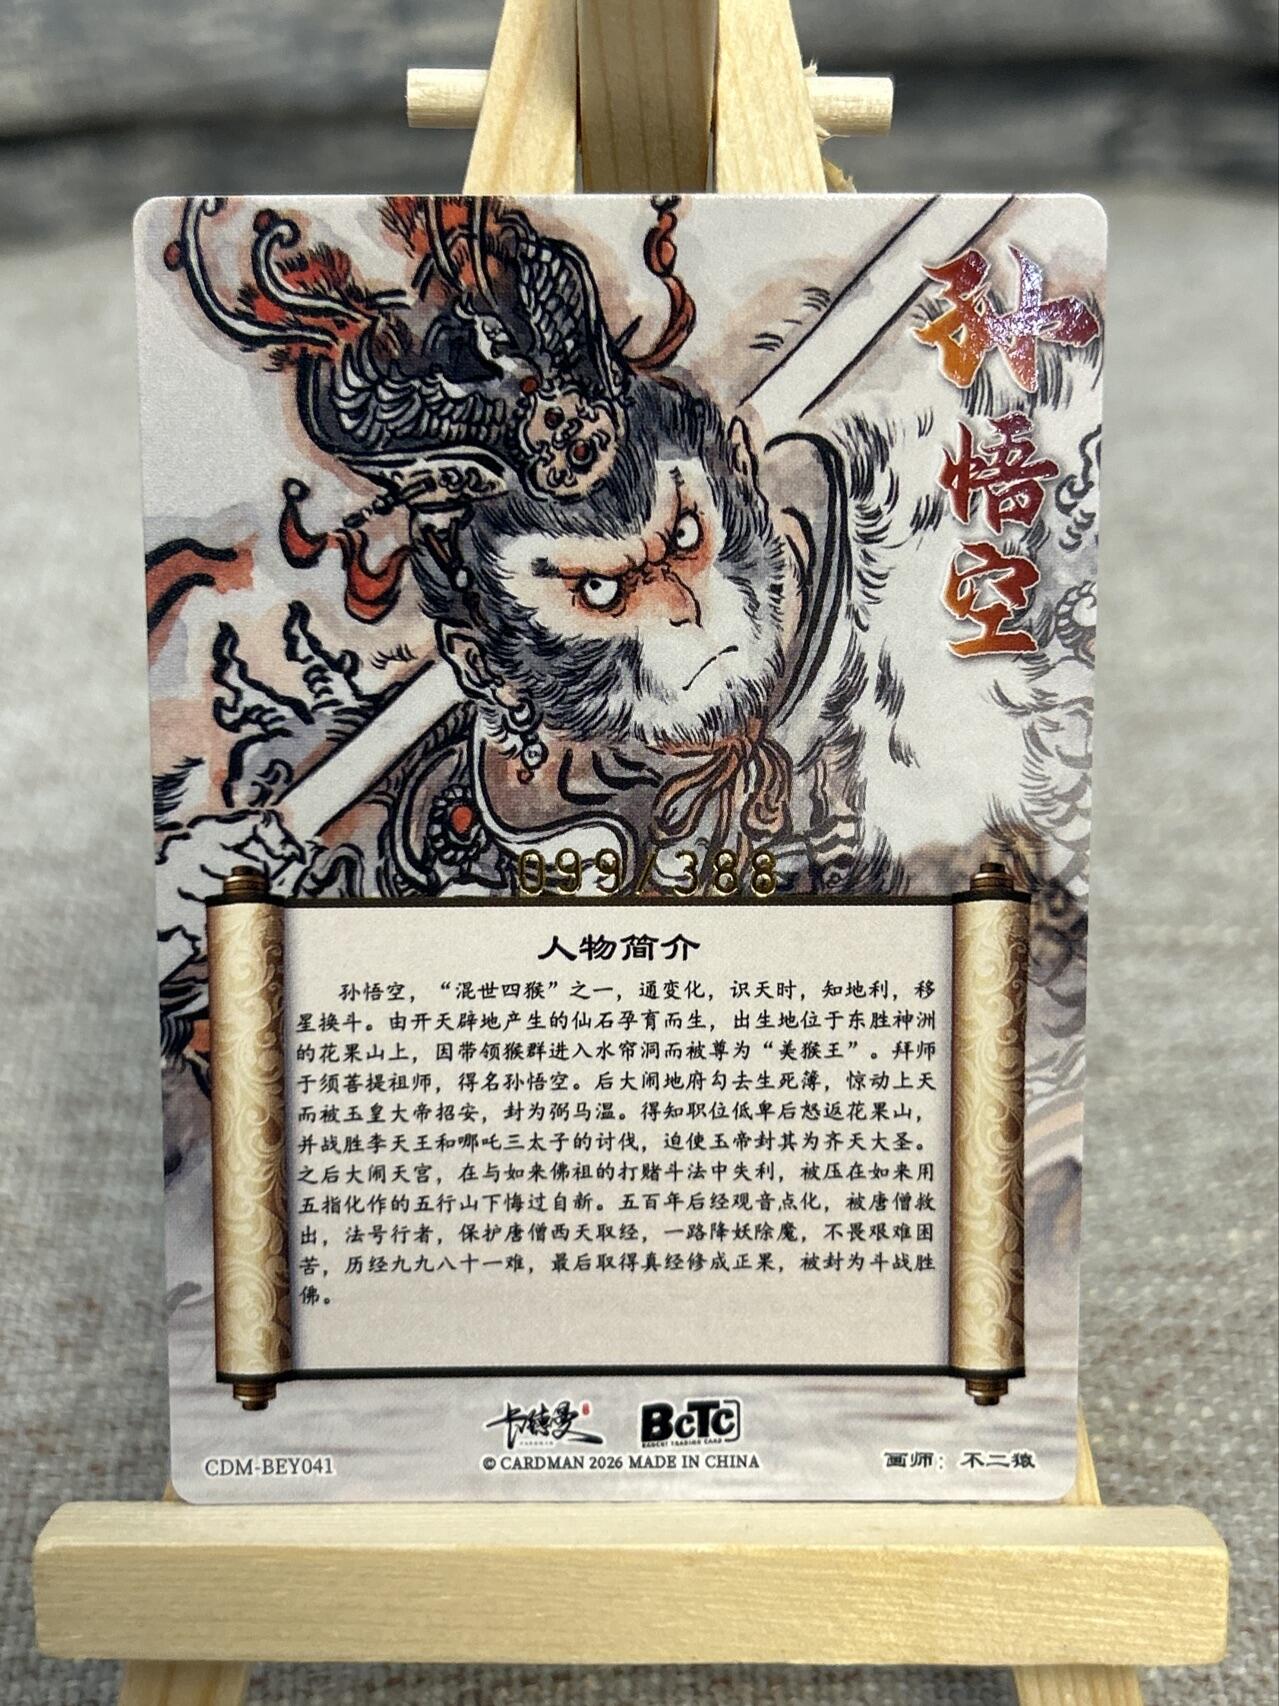 孙悟空
099/388
人物简介
孙悟空，“混世四猴”之一，通变化，识天时，知地利，移
星换斗。由开天辟地产生的仙石孕育而生，出生地位于东胜神洲
的花果山上，因带领猴群进入水帘洞而被尊为“美猴王”。拜师
于须菩提祖师，得名孙悟空。后大闹地府勾去生死簿，惊动上天
而被玉皇大帝招安，封为弼马温。得知职位低卑后怒返花果山，
并战胜李天王和哪吒三太子的讨伐，迫使玉帝封其为齐天大圣。
之后大闹天宫，在与如来佛祖的打赌斗法中失利，被压在如来用
五指化作的五行山下悔过自新。五百年后经观音点化，被唐僧救
出，法号行者，保护唐僧西天取经，一路降妖除魔，不畏艰难困
苦，历经九九八十一难，最后取得真经修成正果，被封为斗战胜
佛。
卡德曼
BCTC
CDM-BEY041
© CARDMAN 2026 MADE IN CHINA
画师：不二猿